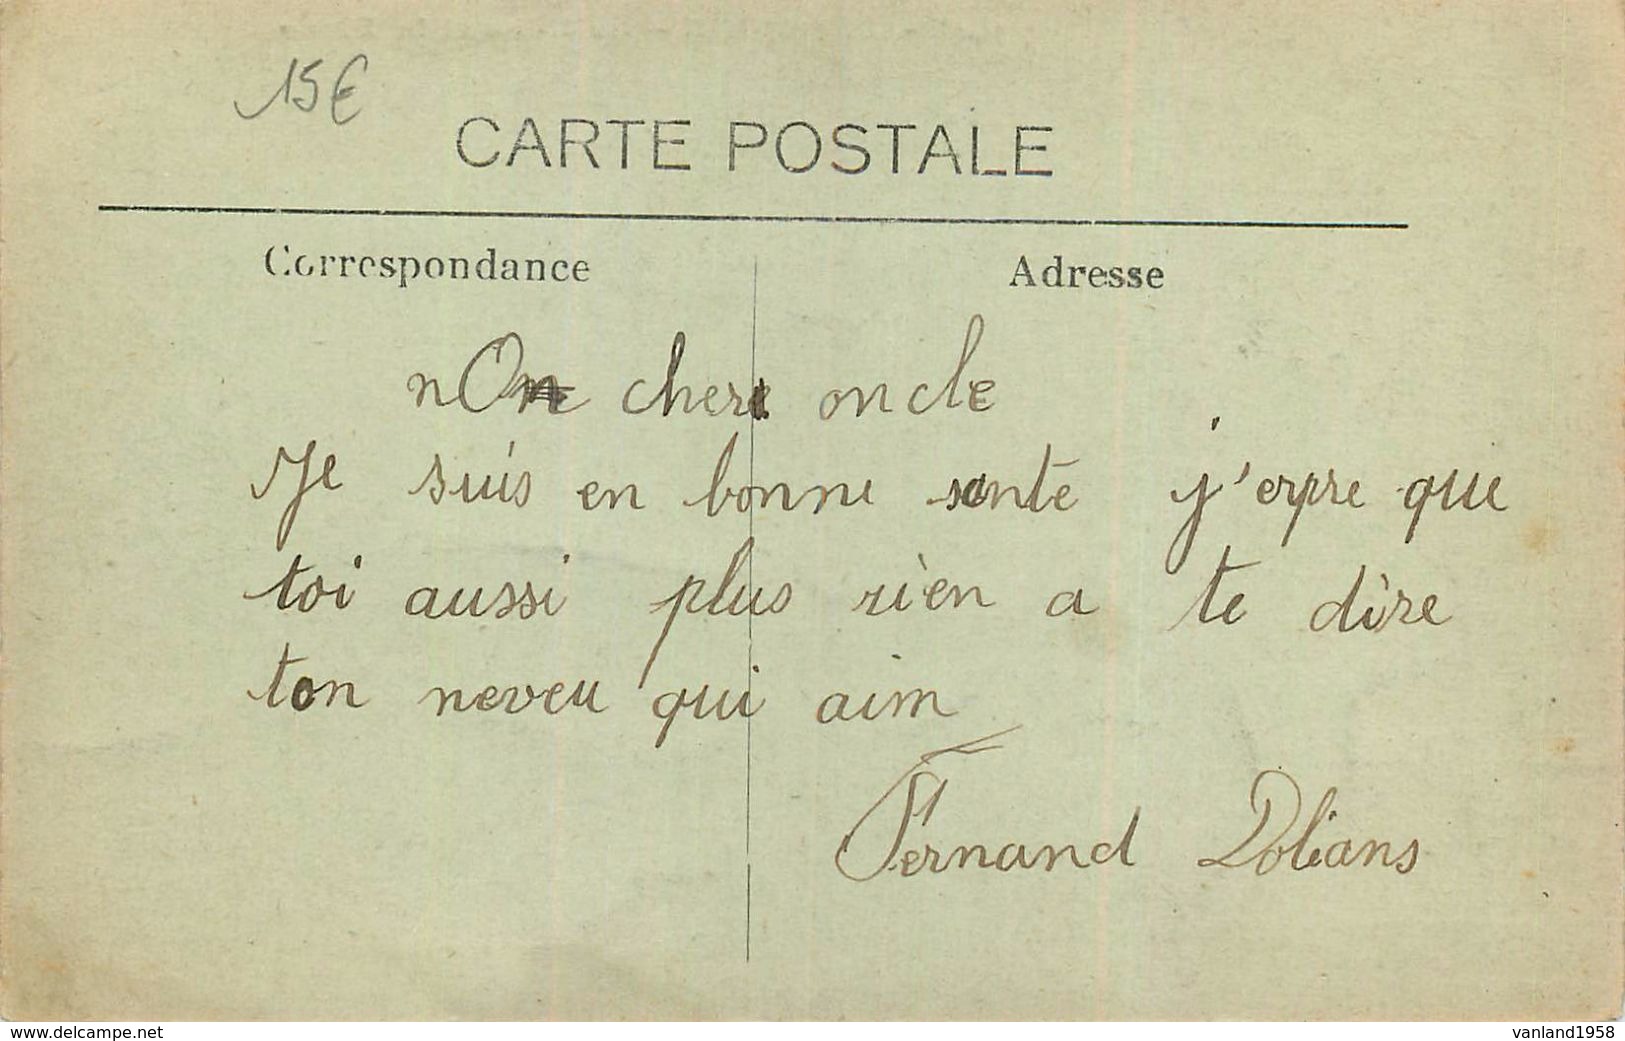 15€
CARTE POSTALE
Correspondance Adresse
nOn cher oncle
Je suis en bonne sante j'erpre que
toi aussi plus rien a te dire
ton neveu qui aim
Fernand Dolians
www.delcampe.net vanland1958